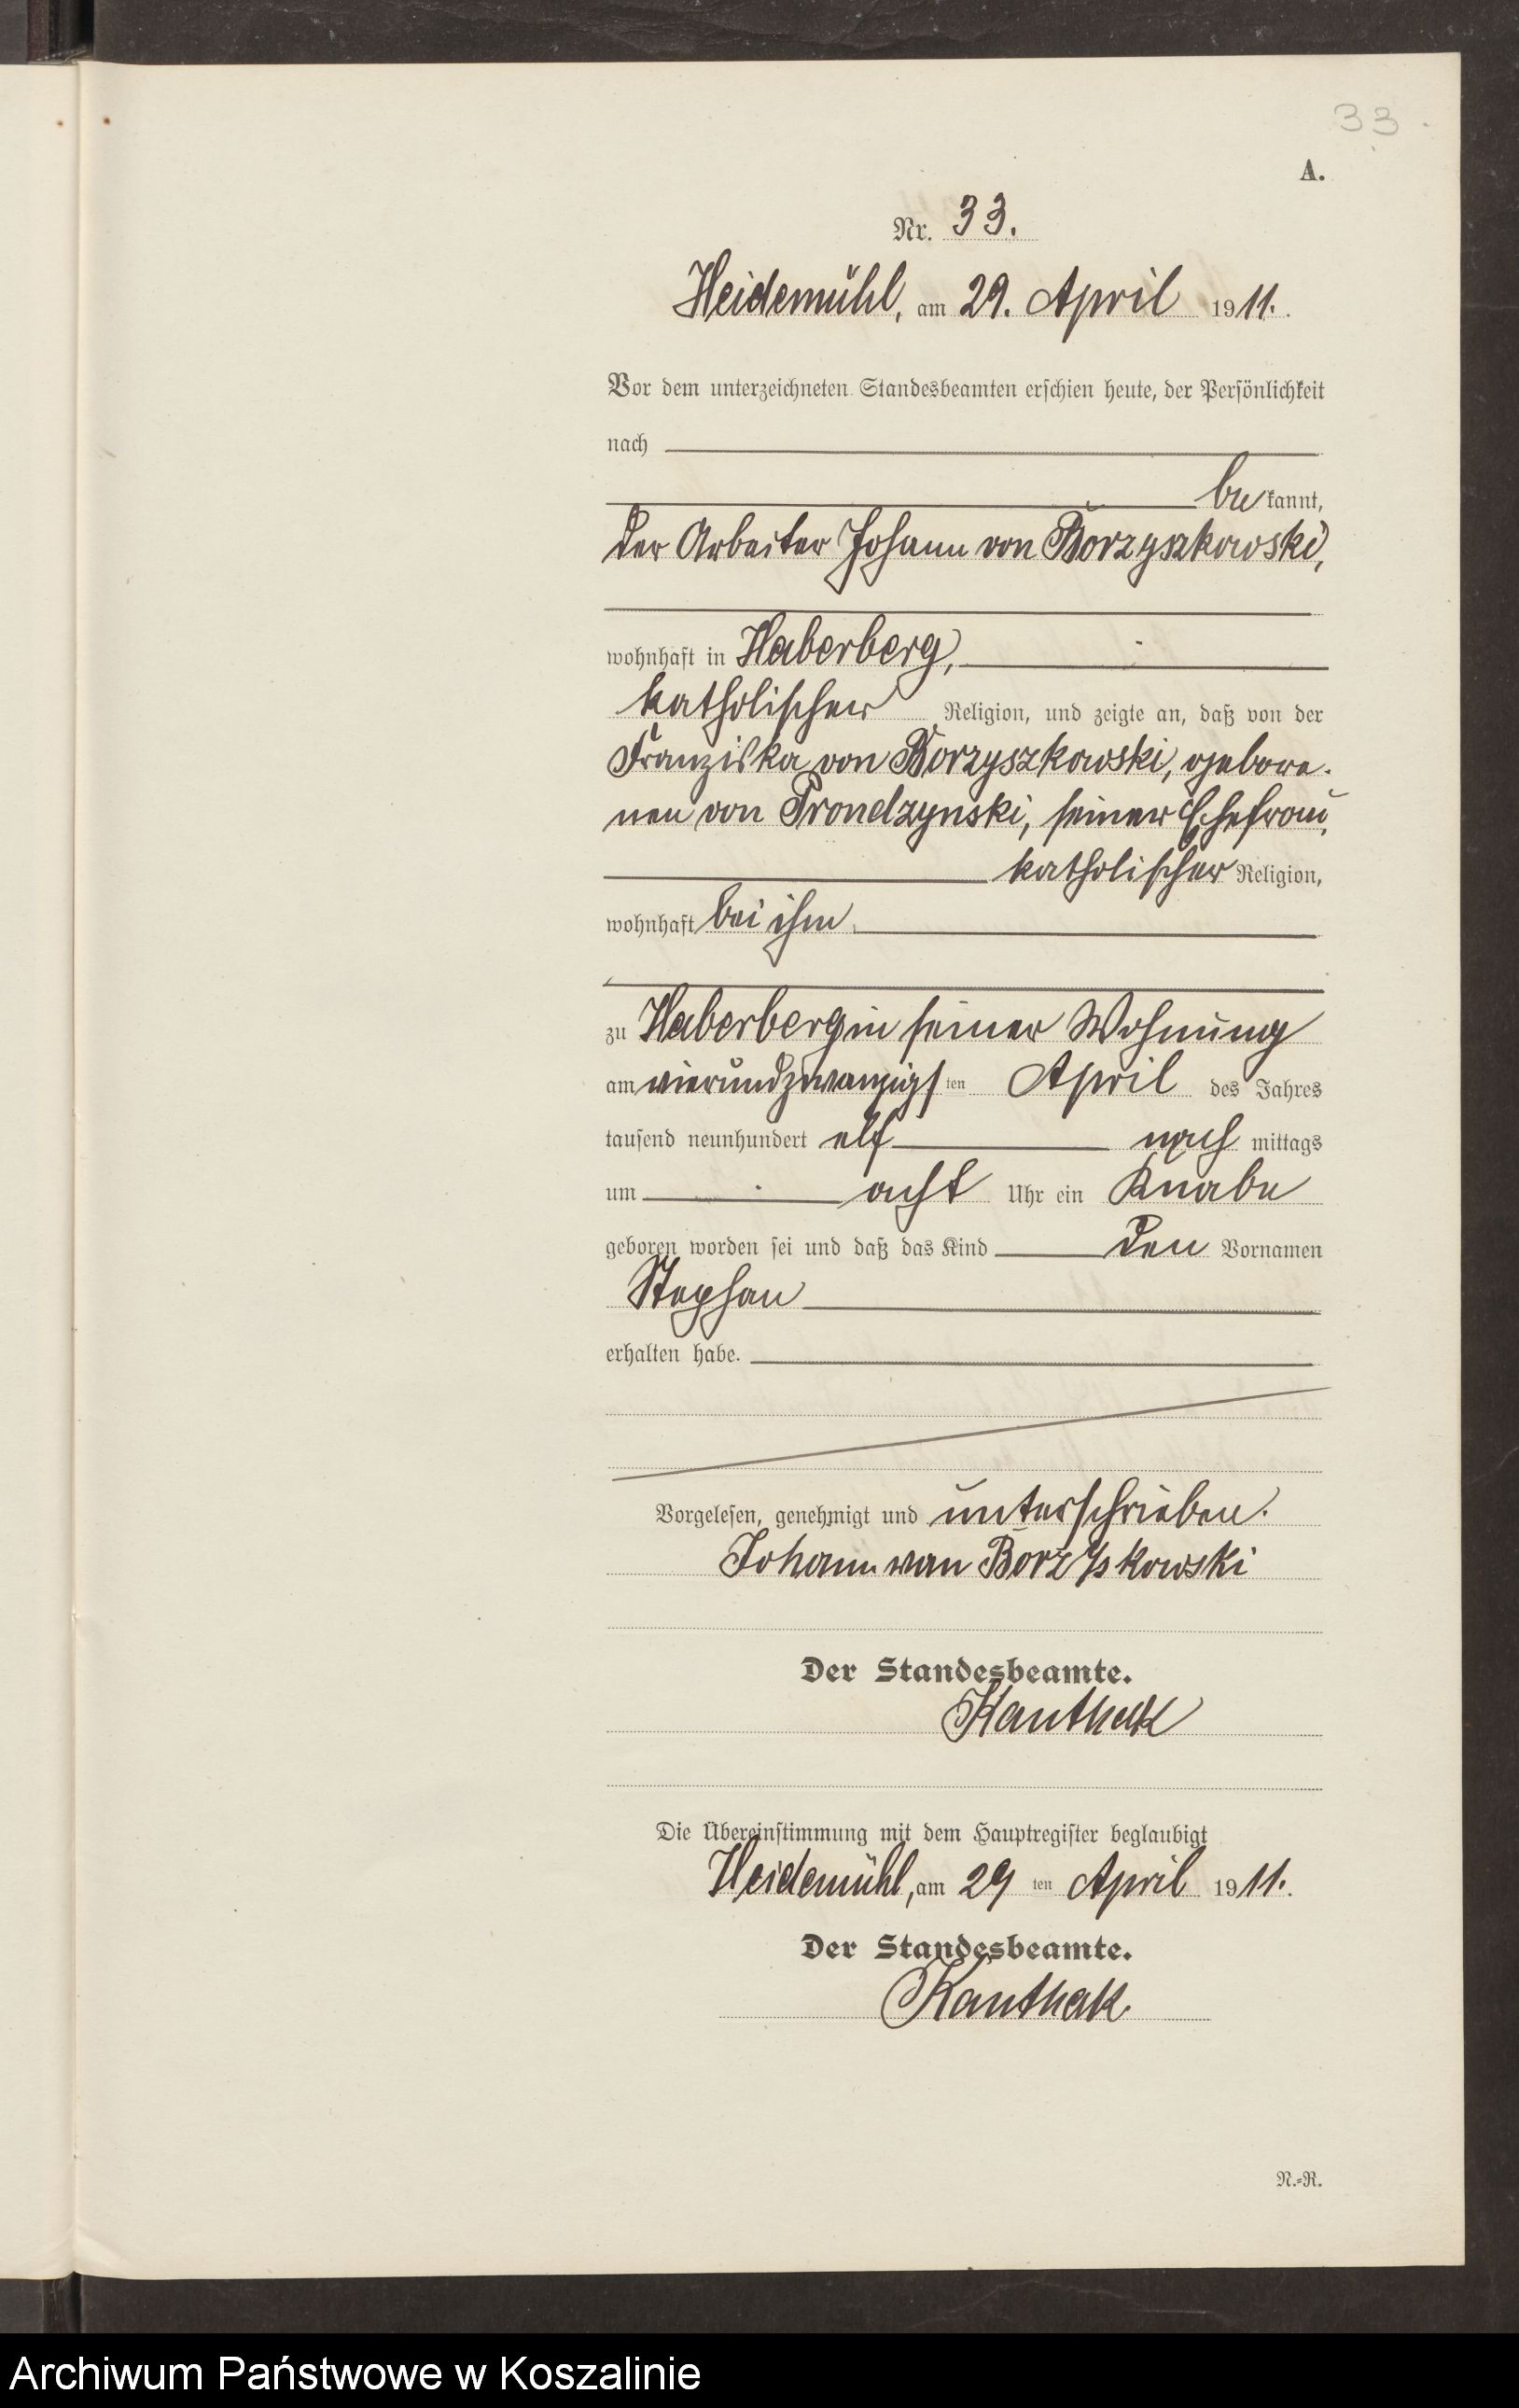 33.
A.
Nr. 33.
Heidemühl, am 29. April 1911.
Vor dem unterzeichneten Standesbeamten erschien heute, der Persönlichkeit
nach
be kannt,
der Arbeiter Johann von Borzyszkowski,
wohnhaft in Haberberg,
katholischer Religion, und zeigte an, daß von der
Franziska von Borzyszkowski, gebore-
nen von Prondzynski, seiner Ehefrau,
katholischer Religion,
wohnhaft bei ihm
zu Haberberg in seiner Wohnung
am vierundzwanzigsten April des Jahres
tausend neunhundert elf nach mittags
um acht Uhr ein Knabe
geboren worden sei und daß das Kind den Vornamen
Stephan
erhalten habe.
Vorgelesen, genehmigt und unterschrieben.
Johann van Borzyskowski
Der Standesbeamte.
Kanthak
Die Übereinstimmung mit dem Hauptregister beglaubigt
Heidemühl, am 29 ten April 1911.
Der Standesbeamte.
Kanthak.
N.=R.
Archiwum Państwowe w Koszalinie